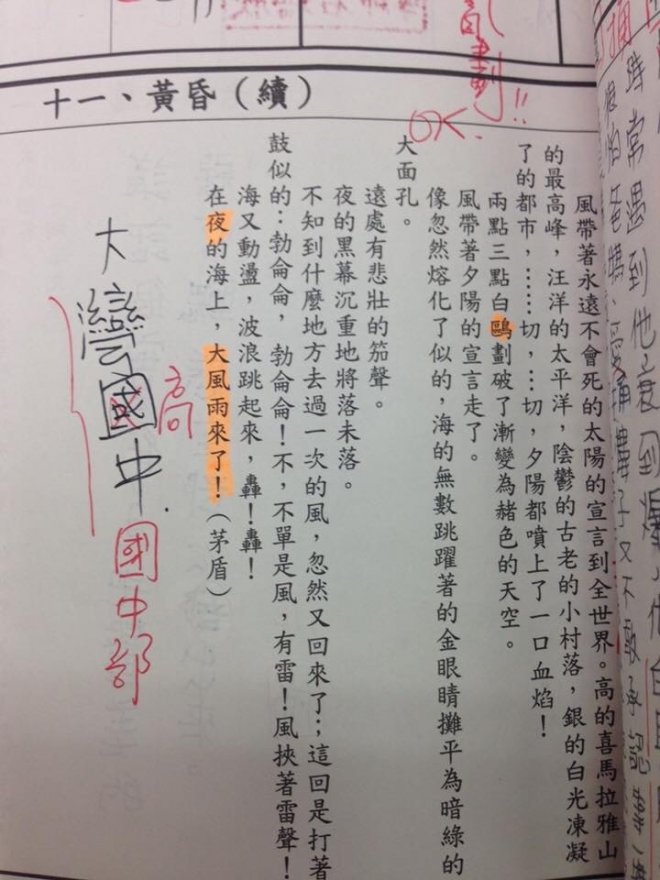 時常遇到他
十一、黃昏（續）
OK.
風帶著永遠不會死的太陽的宣言到全世界。高的喜馬拉雅山
的最高峰，汪洋的太平洋，陰鬱的古老的小村落，銀的白光凍凝
了的都市，……切，…切，夕陽都噴上了一口血焰！
兩點三點白鷗劃破了漸變為赭色的天空。
風帶著夕陽的宣言走了。
像忽然熔化了似的，海的無數跳躍著的金眼睛攤平為暗綠的
大面孔。
遠處有悲壯的笳聲。
夜的黑幕沉重地將落未落。
不知到什麼地方去過一次的風，忽然又回來了；這回是打著
鼓似的：勃侖侖，勃侖侖！不，不單是風，有雷！風挾著雷聲！
海又動盪，波浪跳起來，轟！轟！
在夜的海上，大風雨來了！（茅盾）
高
國中部
大灣國中.